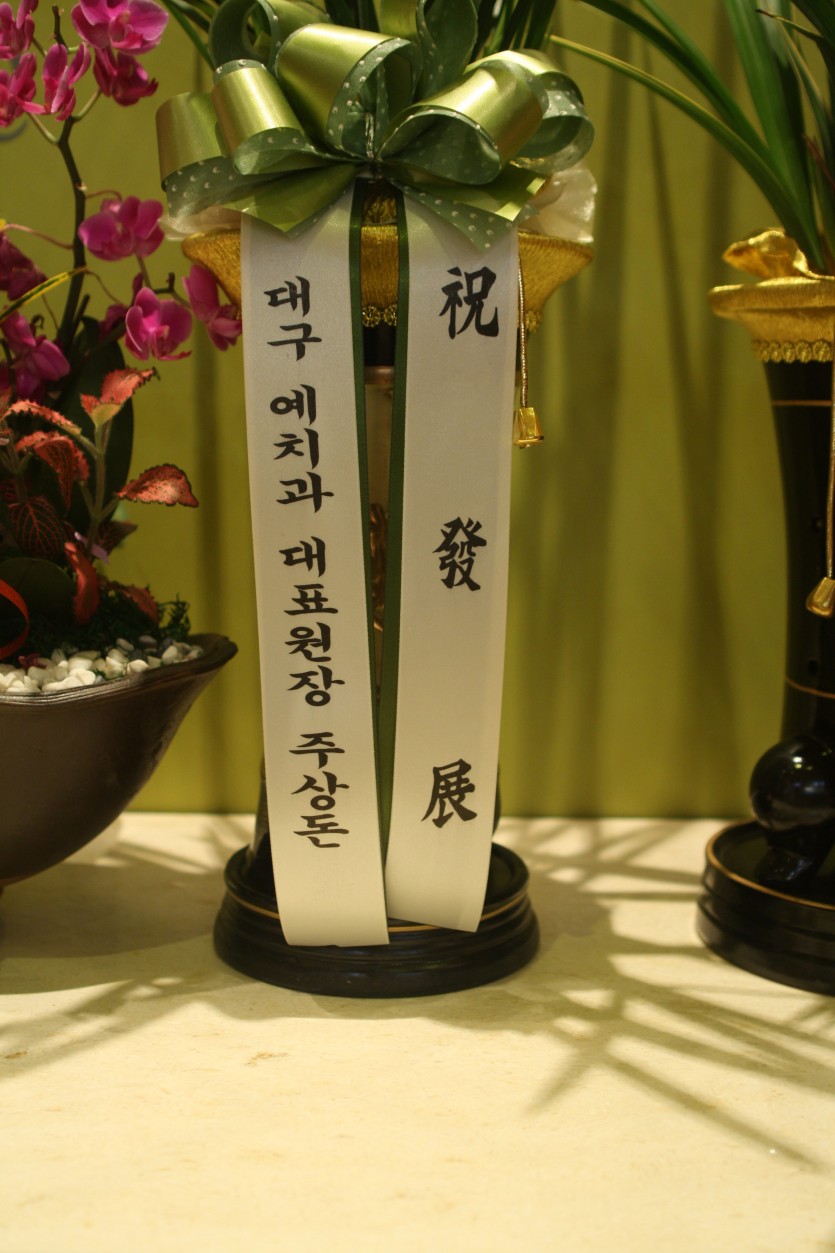 祝發展
대구 예치과 대표원장 주상돈